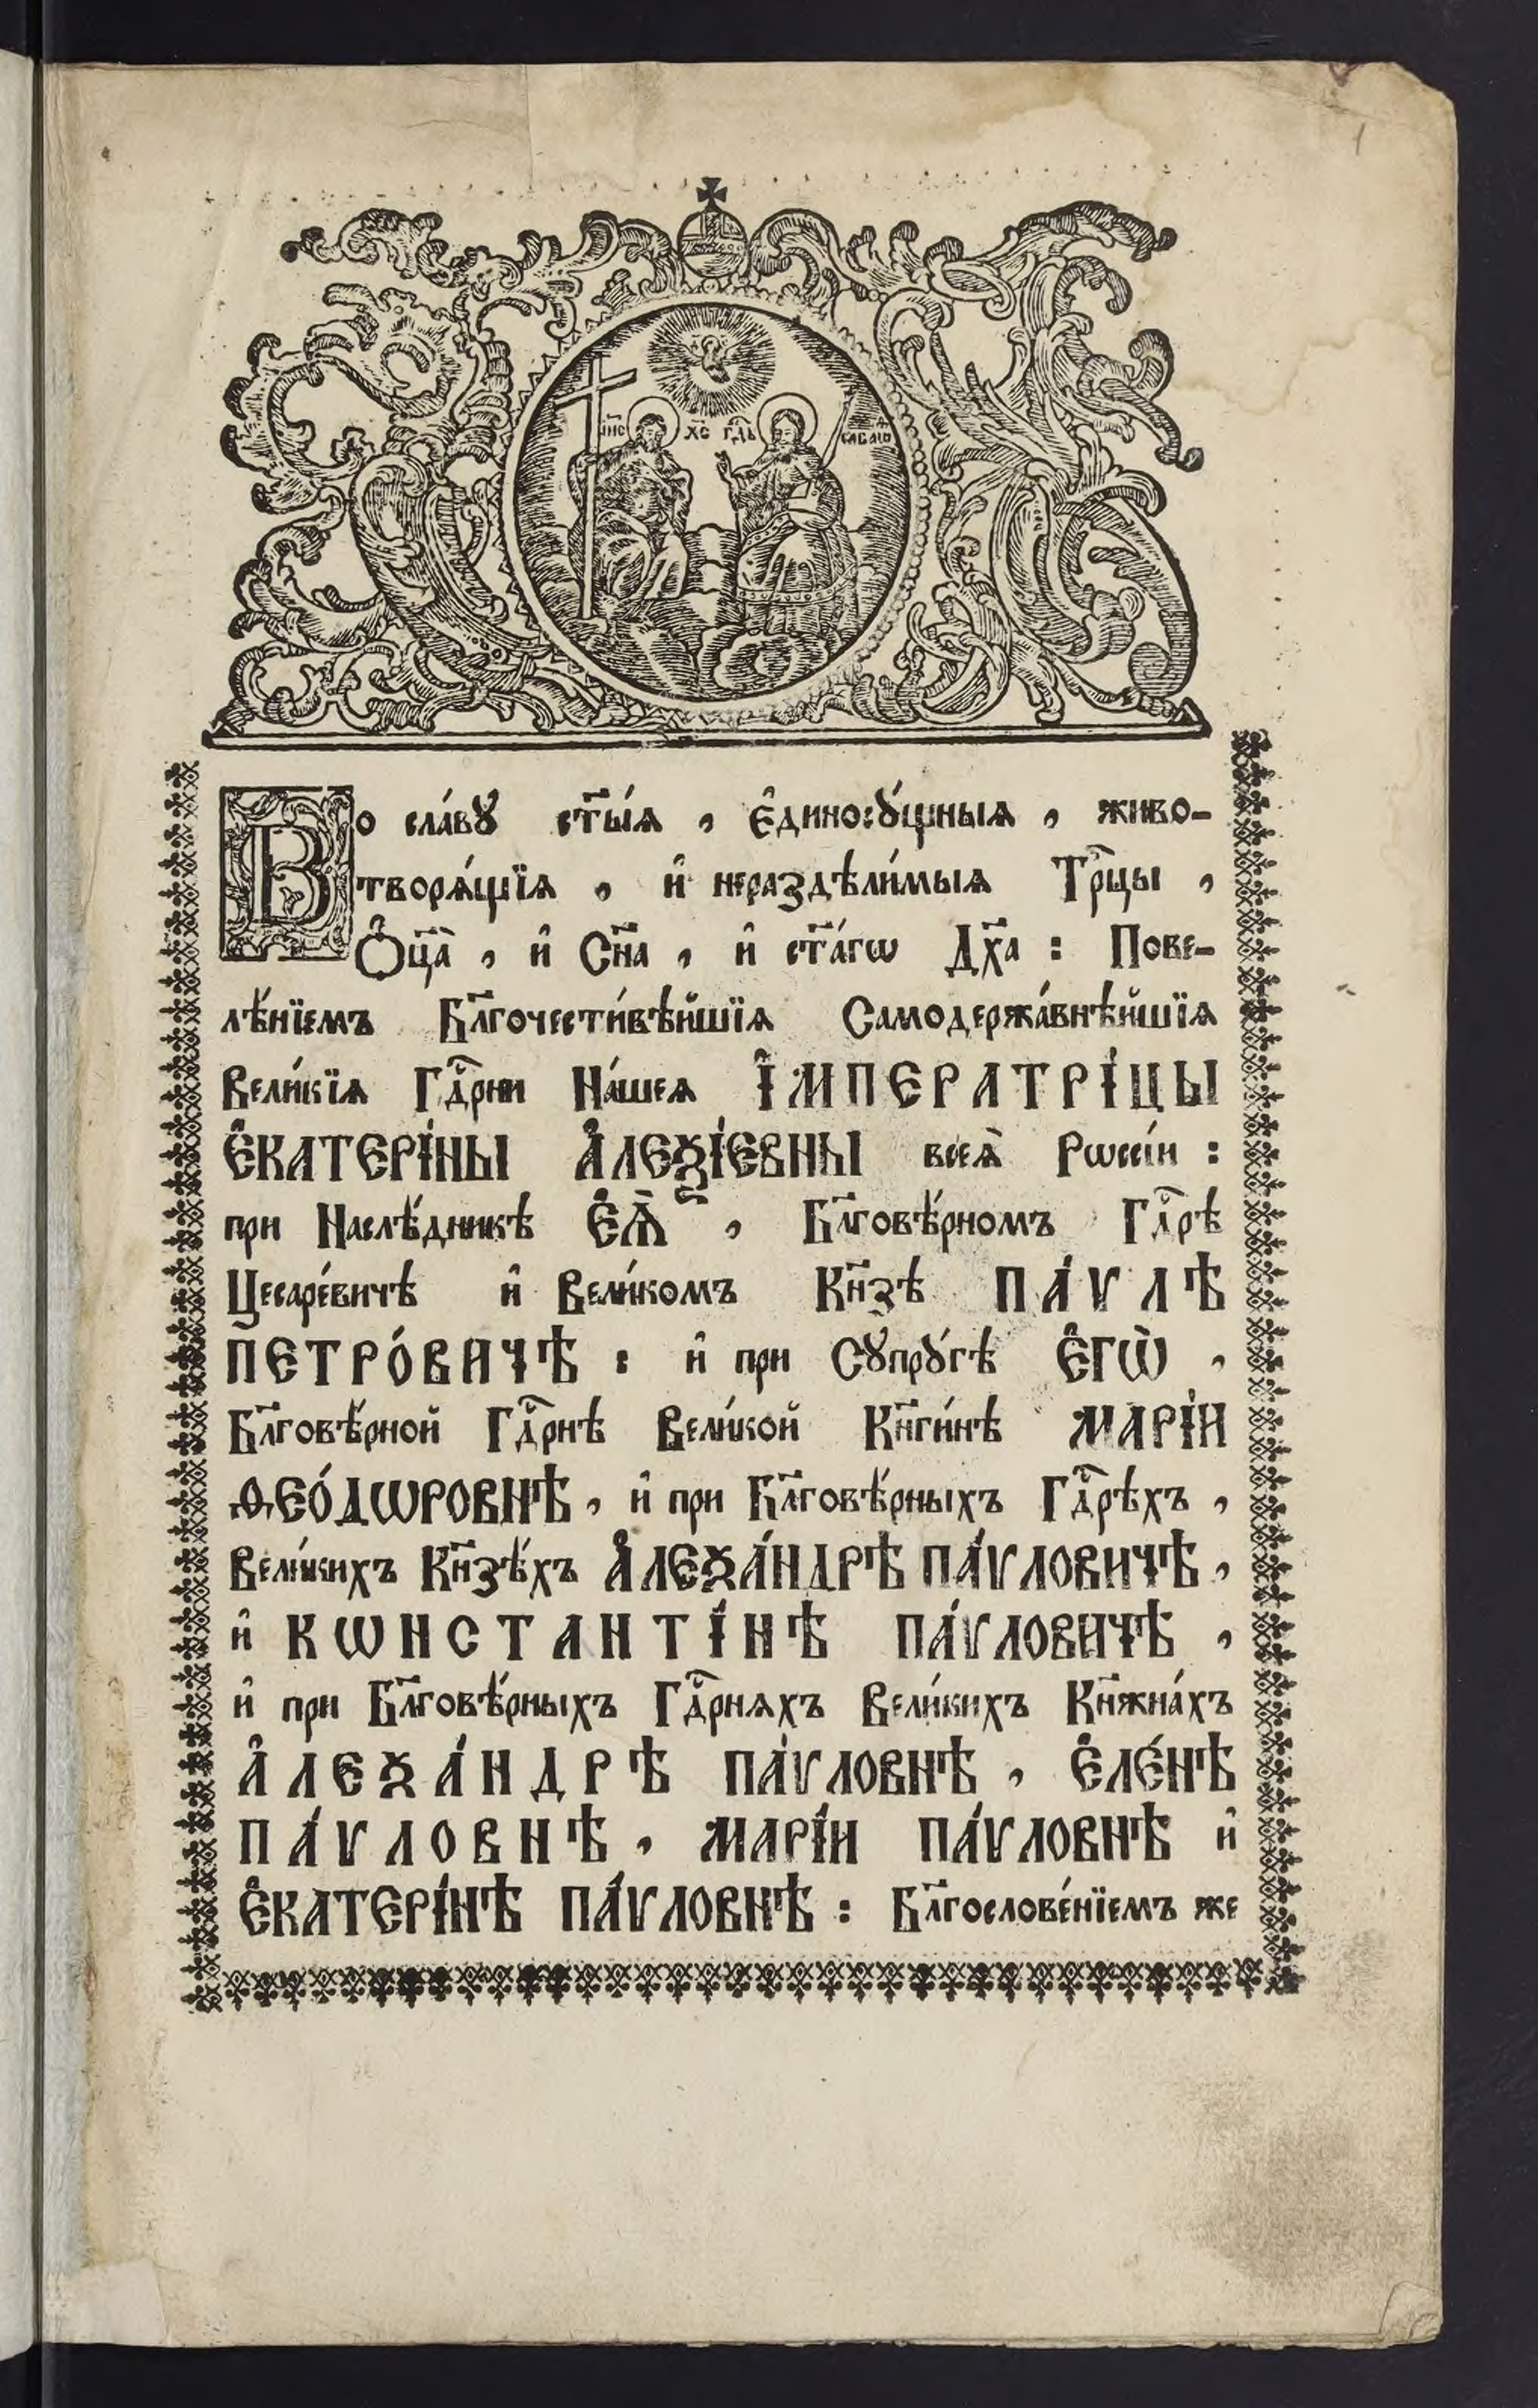 1
І҆и҃с Х҃с Гд҃ь Саваѡѳ
Во сла́вꙋ ст҃ы́ѧ , є҆диносꙋ́щныѧ , живо-
творѧ́щїѧ , и҆ нераздѣли́мыѧ Трⷪ҇цы ,
Ѻ҆ц҃а̀ , и҆ Сн҃а , и҆ ст҃а́гѡ Дх҃а : Пове-
лѣ́нїемъ Бл҃гочести́вѣйшїѧ Самодержа́внѣйшїѧ
Вели́кїѧ Гдⷭ҇рни На́шеѧ І҆МПЕРАТРІ́ЦЫ
Є҆КАТЕРІ́НЫ А҆ЛЕѮІ́ЕВНЫ всеѧ̀ Рѡссі́и :
при Наслѣ́дникѣ Є҆Ѧ̀ , Бл҃говѣ́рномъ Гдⷭ҇рѣ
Цесаре́вичѣ и҆ Вели́комъ Кн҃зѣ ПА́ѴЛѢ
ПЕТРО́ВИЧѢ : и҆ при Сꙋпрꙋ́гѣ Є҆ГѠ̀ ,
Бл҃говѣ́рной Гдⷭ҇рнѣ Вели́кой Кн҃ги́нѣ МАРІ́И
ѲЕО́ДѠРОВНѢ , и҆ при Бл҃говѣ́рныхъ Гдⷭ҇рѣхъ ,
Вели́кихъ Кн҃зѣ́хъ А҆ЛЕѮА́НДРѢ ПА́ѴЛОВИЧѢ ,
и҆ КѠНСТАНТІ́НѢ ПА́ѴЛОВИЧѢ ,
и҆ при Бл҃говѣ́рныхъ Гдⷭ҇рнѧхъ Вели́кихъ Кн҃жна́хъ
А҆ЛЕѮА́НДРѢ ПА́ѴЛОВНѢ , Є҆ЛЕ́НѢ
ПА́ѴЛОВНѢ , МАРІ́И ПА́ѴЛОВНѢ и҆
Є҆КАТЕРІ́НѢ ПА́ѴЛОВНѢ : Бл҃гослове́нїемъ же